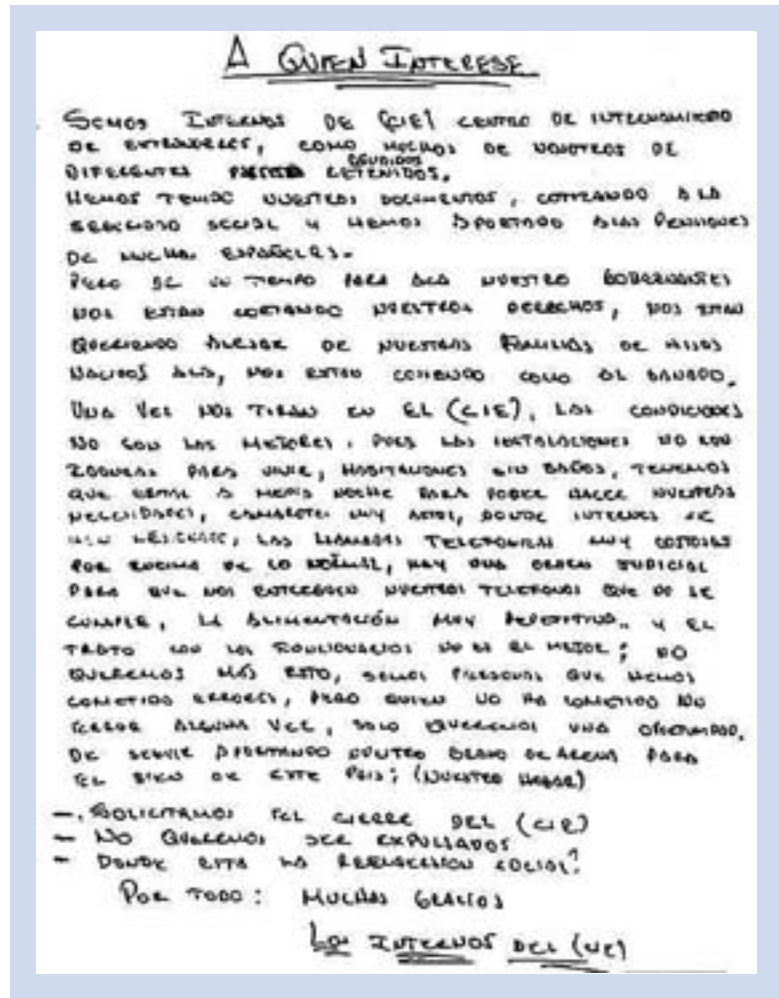 A QUIEN INTERESE
SEMOS INTERNOS DE (CIE) CENTRO DE INTERNAMIENTO
DE EXTRANJEROS, COMO MUCHOS DE NOSOTROS DE
DIFERENTES RETENIDOS.
HEMOS TENIDO NUESTROS DOCUMENTOS, COTIZANDO A LA
SEGURIDAD SOCIAL Y HEMOS APORTADO A LAS PENSIONES
DE MUCHOS ESPAÑOLES.
PERO DE UN TIEMPO PARA ACA NUESTRO GOBERNANTES
NOS ESTAN CORTANDO NUESTROS DERECHOS, NOS ESTAN
QUERIENDO ALEJAR DE NUESTRAS FAMILIAS DE HIJOS
NACIDOS ACA, NOS ESTAN COMO GANADO.
UNA VEZ NOS TIRAN EN EL (CIE), LAS CONDICIONES
NO SON LAS MEJORES, PUES LAS INSTALACIONES NO SON
PARA VIVIR, HABITACIONES SIN BAÑOS, TENEMOS
QUE A MEDIA NOCHE PARA PODER HACER NUESTRAS
NECESIDADES, CAMAROTES MUY ALTOS, DONDE INTERNOS SE
HAN LESIONADO, LAS LLAMADAS TELEFONICAS MUY COSTOSAS
POR ENCIMA DE LO NORMAL, HAY UNA ORDEN JUDICIAL
PARA QUE NOS ENTREGUEN NUESTROS TELEFONOS QUE NO SE
CUMPLE, LA ALIMENTACIÓN MUY REPETITIVA, Y EL
TRATO CON LOS FUNCIONARIOS NO ES EL MEJOR; NO
QUEREMOS MÁS ESTO, SEMOS PERSONAS QUE HEMOS
COMETIDO ERRORES, PERO QUIEN NO HA COMETIDO UN
ERROR ALGUNA VEZ, SOLO QUEREMOS UNA OPORTUNIDAD.
DE SEGUIR APORTANDO NUESTRO GRANO DE ARENA PARA
EL BIEN DE ESTE PAIS; (NUESTRO HOGAR)
-. SOLICITAMOS EL CIERRE DEL (CIE)
- NO QUEREMOS SER EXPULSADOS
- DONDE ESTA LA SOCIAL?
POR TODO: MUCHAS GRACIAS
LOS INTERNOS DEL (CIE)